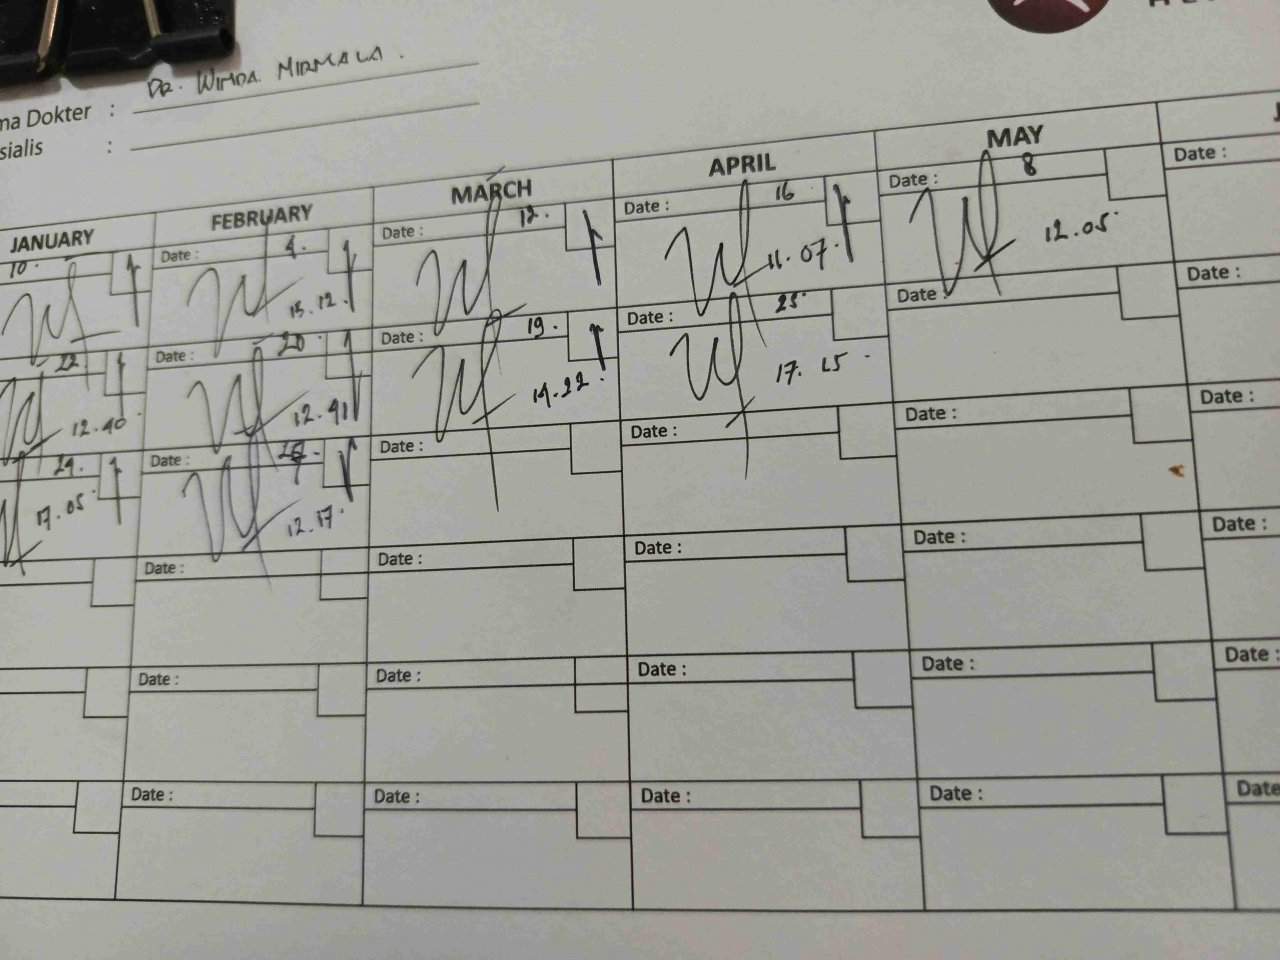 DR. WINDA NIRMALA.
ma Dokter :
sialis :
JANUARY FEBRUARY MARCH APRIL MAY
10. Date : 4. Date : 12. Date : 16 Date : 8 Date :
15.12. 11.07. 12.05
22. Date : 20 Date : 19. Date : 25 Date : Date :
12.40 12.41 14.22. 17.25
29. Date : Date : Date : Date : Date :
17.05 12.17.
Date : Date : Date : Date : Date :
Date : Date : Date : Date : Date :
Date : Date : Date : Date : Date